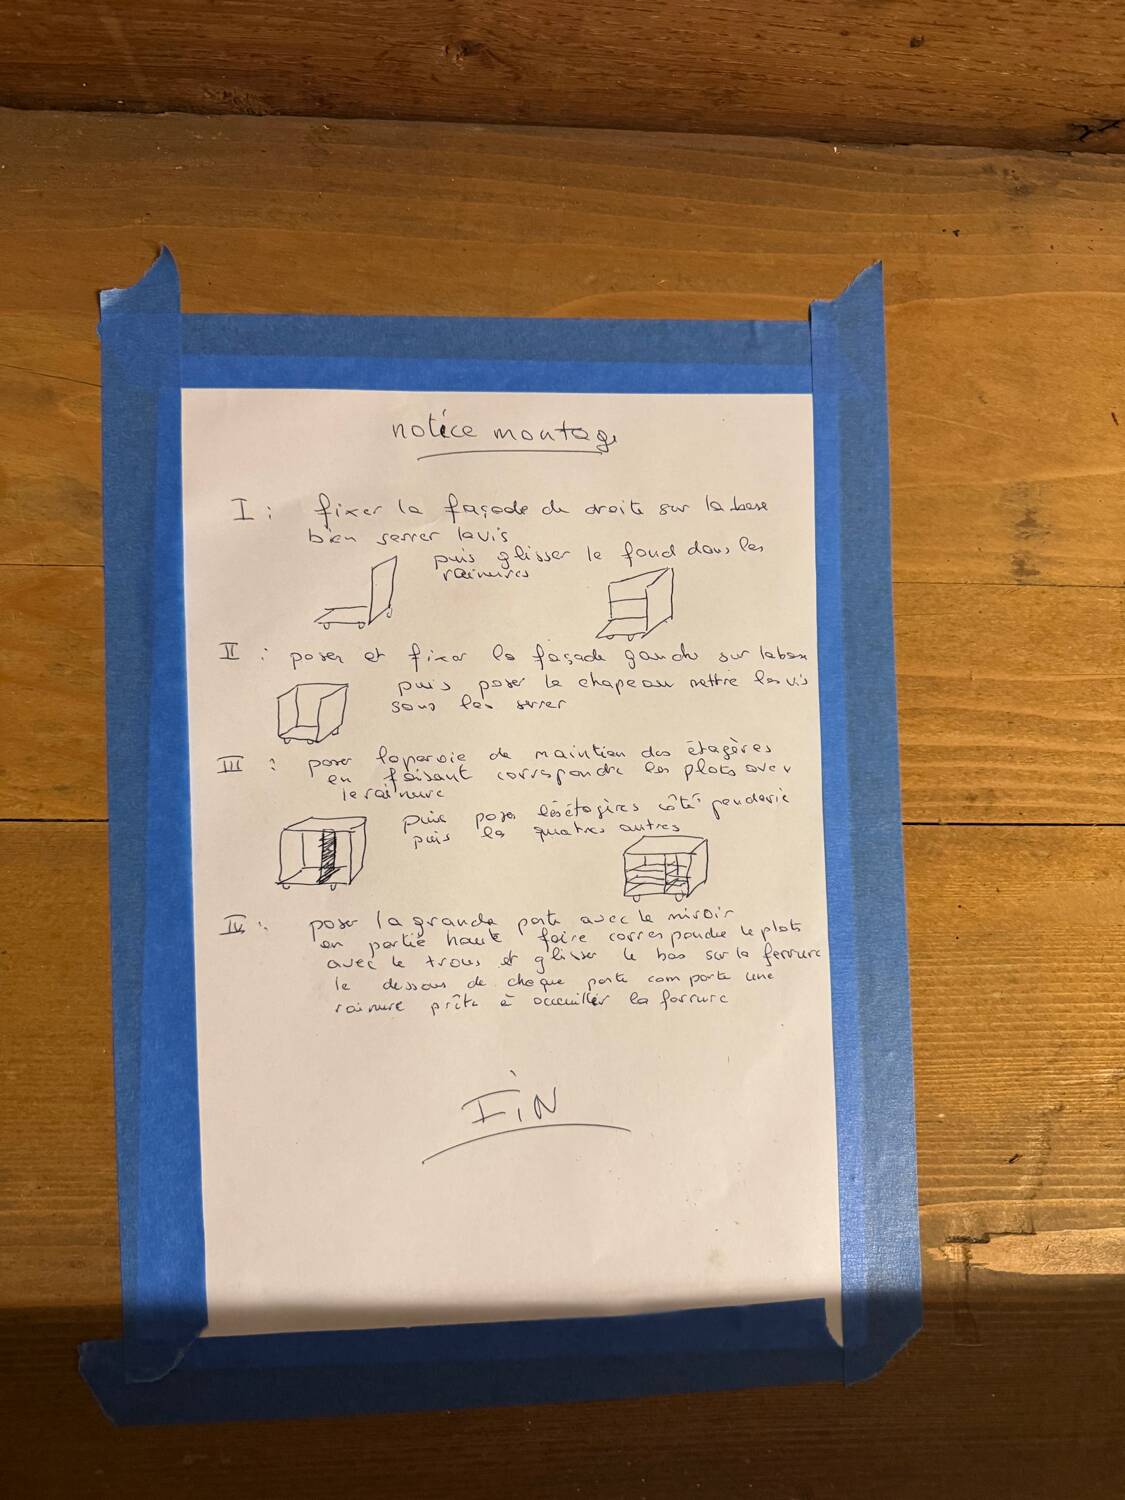 notice montage
I : fixer la façade de droite sur la base
bien serrer la vis
puis glisser le fond dans les
rainures
II : poser et fixer la façade gauche sur la base
puis poser le chapeau mettre les vis
sans les serrer
III : poser la paroie de maintien des étagères
en faisant correspondre les plots avec
le rainure
puis poser les étagères côté penderie
puis les quatres autres
IV : poser la grande porte avec le miroir
en partie haute faire correspondre le plots
avec le trous et glisser le bas sur la ferrure
le dessous de chaque porte comporte une
rainure prête à accueillir la ferrure
FiN